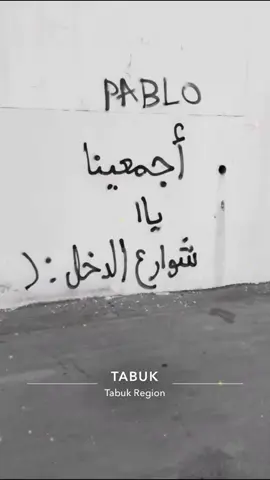 PABLO
أجمعينا
يا
شوارع الدخل : (
TABUK
Tabuk Region